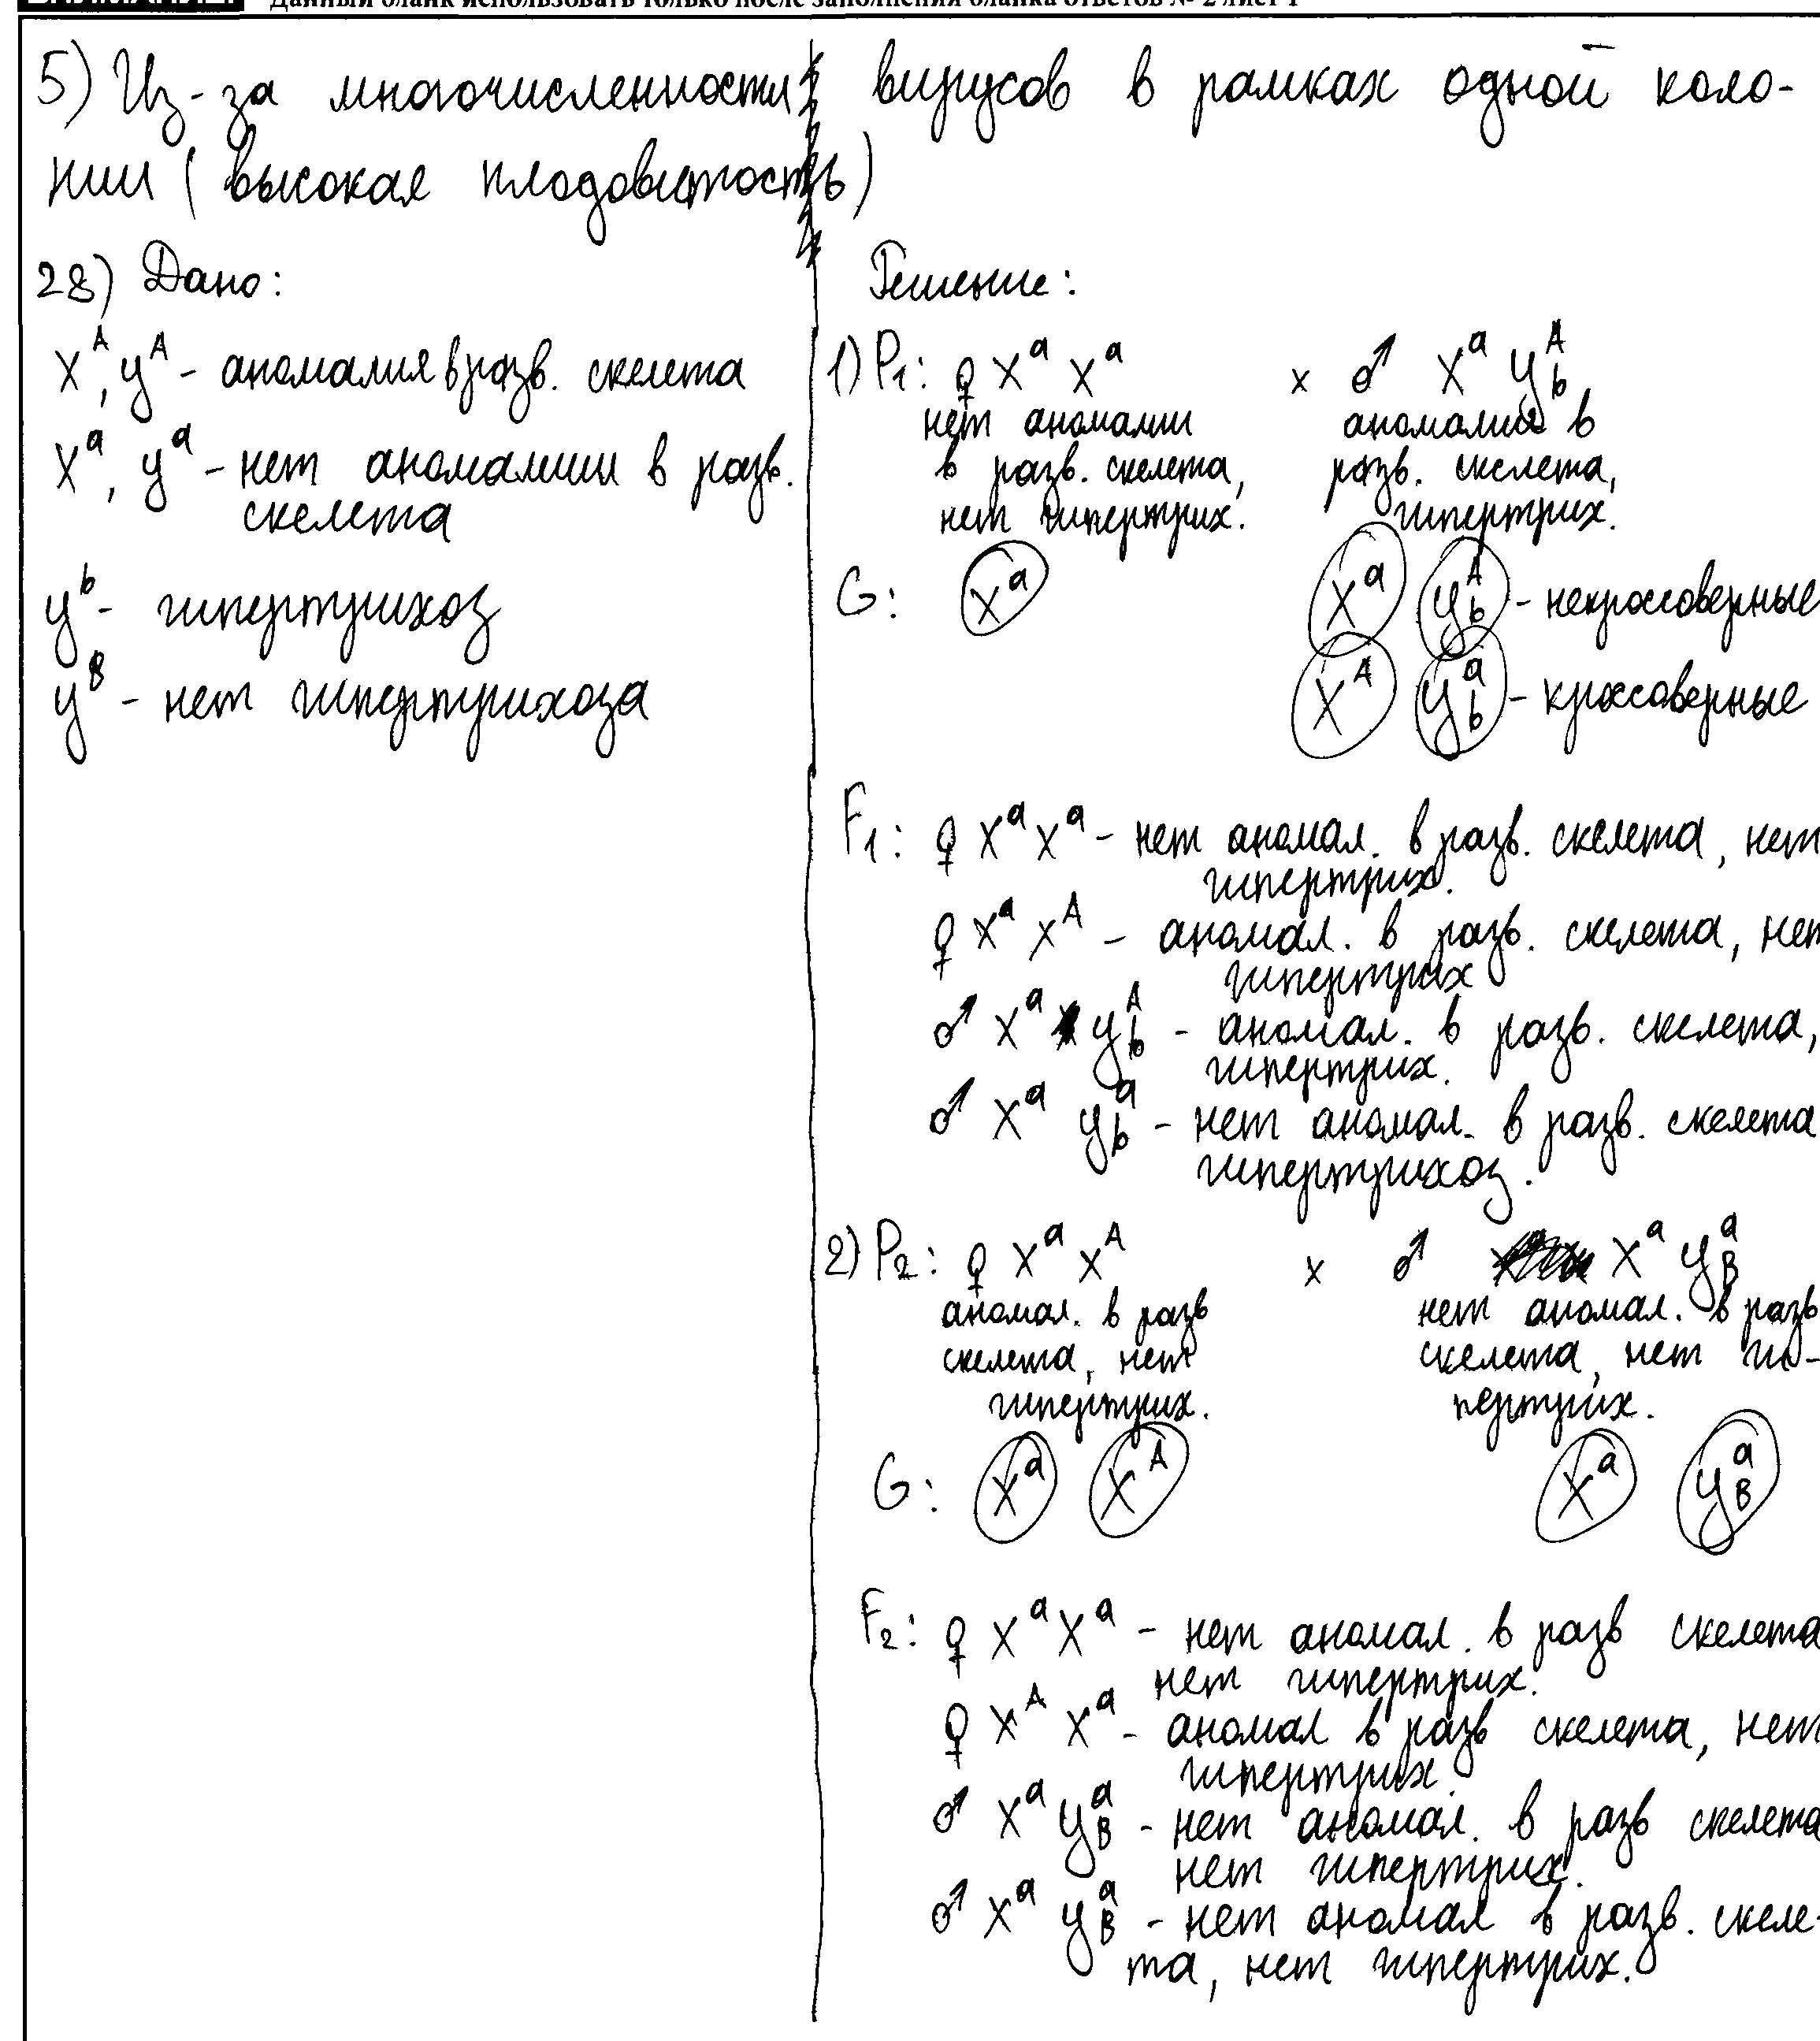 Данный бланк использовать только после заполнения бланка ответов № 2 лист 1
5) Из-за многочисленности вирусов в рамках одной коло-
нии (высокая плодовитость)
28) Дано:
X^A, Y^A - аномалия в разв. скелета
X^a, Y^a - нет аномалии в разв.
скелета
Y^b - гипертрихоз
Y^B - нет гипертрихоза
Решение:
1) P1: ♀ X^a X^a x ♂ X^a Y^A_b
нет аномалии аномалия в
в разв. скелета, разв. скелета,
нет гипертрих. гипертрих.
G: X^a X^a Y^A_b - некроссоверные
X^A Y^a_b - кроссоверные
F1: ♀ X^a X^a - нет аномал. в разв. скелета, нет
гипертрих.
♀ X^a X^A - аномал. в разв. скелета, нет
гипертрих
♂ X^a Y^A_b - аномал. в разв. скелета,
гипертрих.
♂ X^a Y^a_b - нет аномал. в разв. скелета
гипертрихоз.
2) P2: ♀ X^a X^A x ♂ X^a Y^a_B
аномал. в разв нет аномал. в разв
скелета, нет скелета, нет ги-
гипертрих. пертрих.
G: X^a X^A X^a Y^a_B
F2: ♀ X^a X^a - нет аномал. в разв скелета
нет гипертрих.
♀ X^A X^a - аномал в разв скелета, нет
гипертрих.
♂ X^a Y^a_B - нет аномал. в разв скелета
нет гипертрих.
♂ X^a Y^a_B - нет аномал в разв. скеле-
та, нет гипертрих.